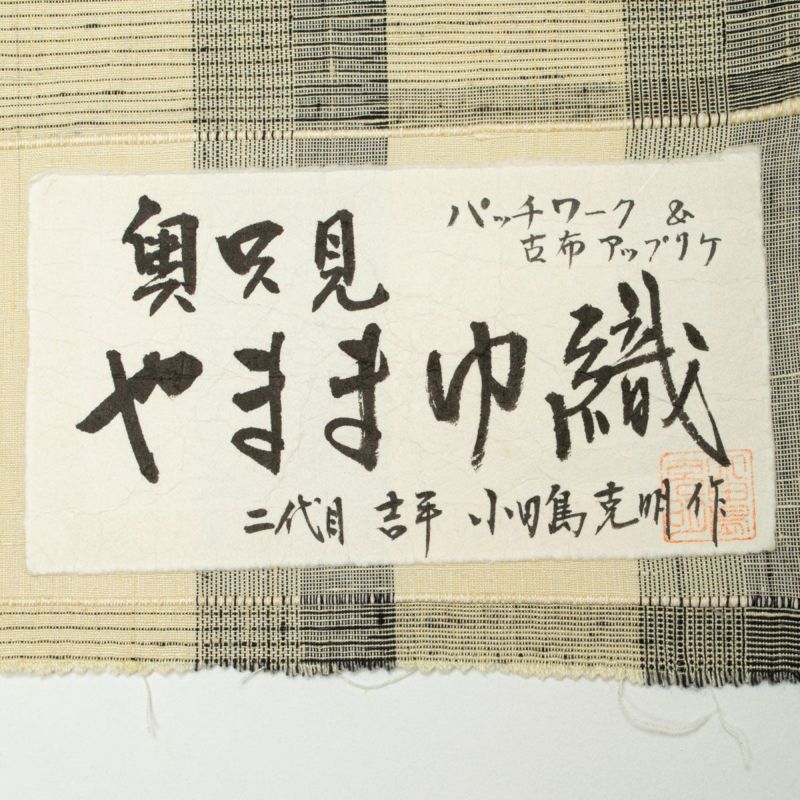 奥只見
パッチワーク &
古布アップリケ
やままゆ織
二代目 吉平 小田島克明作